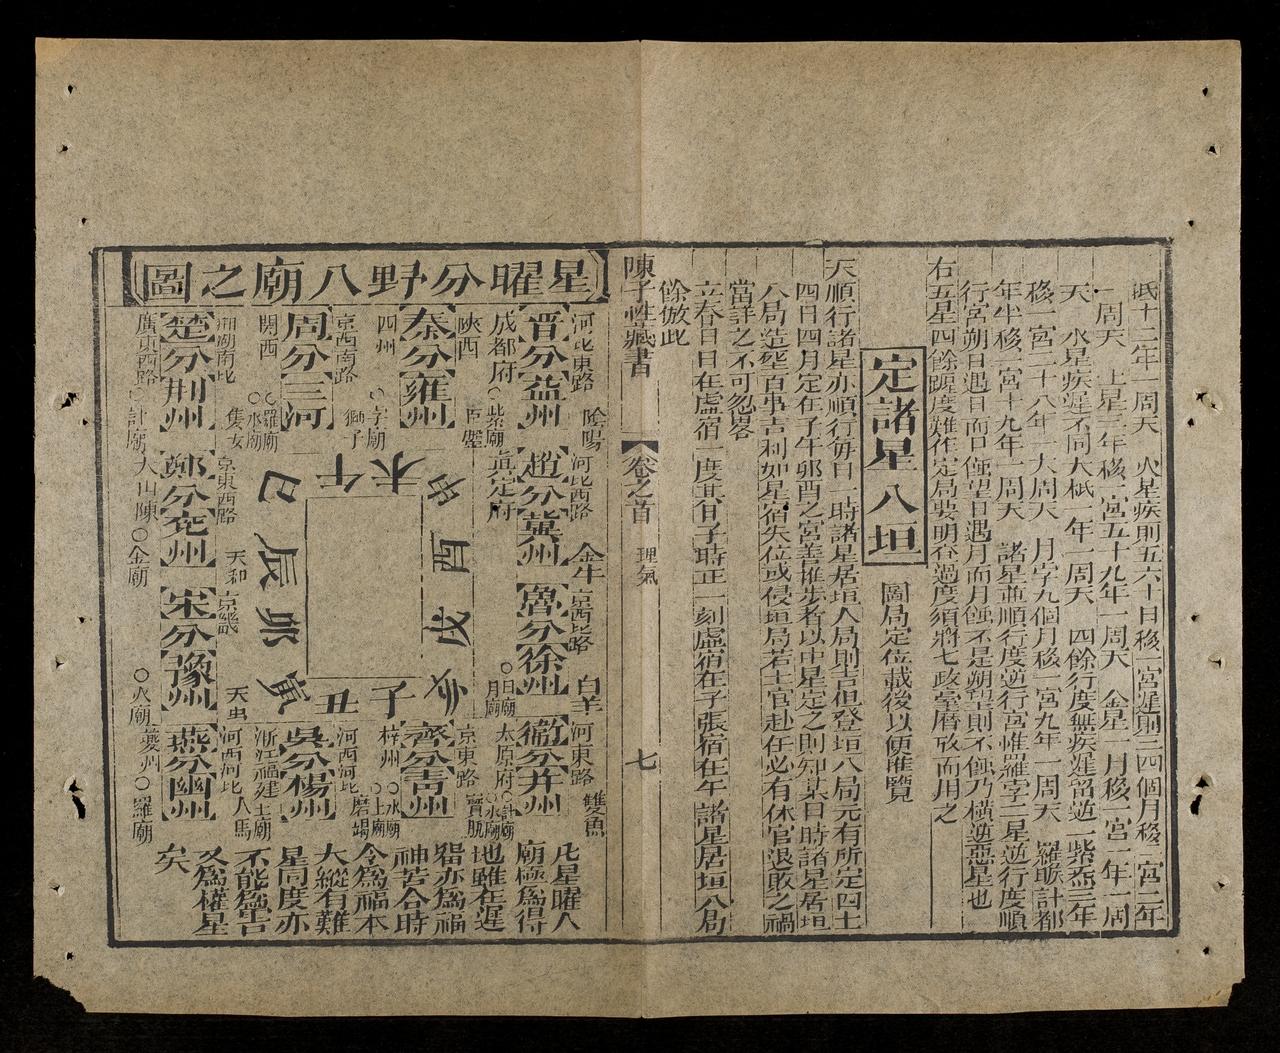 眡十二年一周天　火星疾則五六十日移一宮遲則三四個月移一宮二年
一周天　土星三年移一宮五十九年一周天　金星一月移一宮一年一周
天　水星疾遲不同大柢一年一周天　四餘行度無疾遲留逆一紫炁三年
移一宮二十八年一大周天　月孛九個月移一宮九年一周天　羅睺計都
年半移一宮十九年一周天　諸星並順行度逆行宮惟羅孛二星逆行度順
行宮朔日遇日而日蝕望日遇月而月蝕不是朔望則不蝕乃橫逆惡星也
右五星四餘躔度難作定局要明吞過度須將七政臺曆攷而用之
定諸星八垣
圖局定位載後以便匯覽
天順行諸星亦順行每日一時諸星居垣入局則吉但登垣八局元有所定四土
四日四月定在子午卯酉之宮善推步者以中星定之則知某日時諸星居垣
入局造塟百事吉利如星宿失位或侵垣局若士官赴任必有休官退敗之禍
當詳之不可忽畧
立春日日在虛宿一度其旬子時正一刻虛宿在子張宿在午　諸星居垣八局
餘倣此
陳子性藏書
卷之首
理氣
七
星曜分野八廟之圖
河北東路
陰陽
晋分益州
成都府
○紫廟
河北西路
金牛
趙分冀州
真定府
京西北路
白羊
魯分徐州
○日廟
月廟
河東路
雙魚
衛分并州
太原府
○計廟
○水廟
陝西
巨蠏
秦分雍州
四州
○孛廟
京西南路
獅子
周分三河
関西
○羅廟
○水廟
荊湖南北
隻女
楚分荆州
廣東西路
○計廟
京東西路
天和
鄭分兖州
大山陳
○金廟
京畿
天虫
宋分豫州
○火廟
河西河北
人馬
燕分幽州
薆州
○羅廟
河西河北
磨竭
吳分楊州
浙江福建
土廟
京東路
寶瓶
齊分青州
梓州
○水廟
○土廟
午未
申酉戌亥
子丑
寅卯辰巳
凡星曜人
廟極爲得
也雖在遲
畱亦爲福
神苦合時
令爲福本
大縱有難
星同度亦
不能爲害
又爲權星
矣